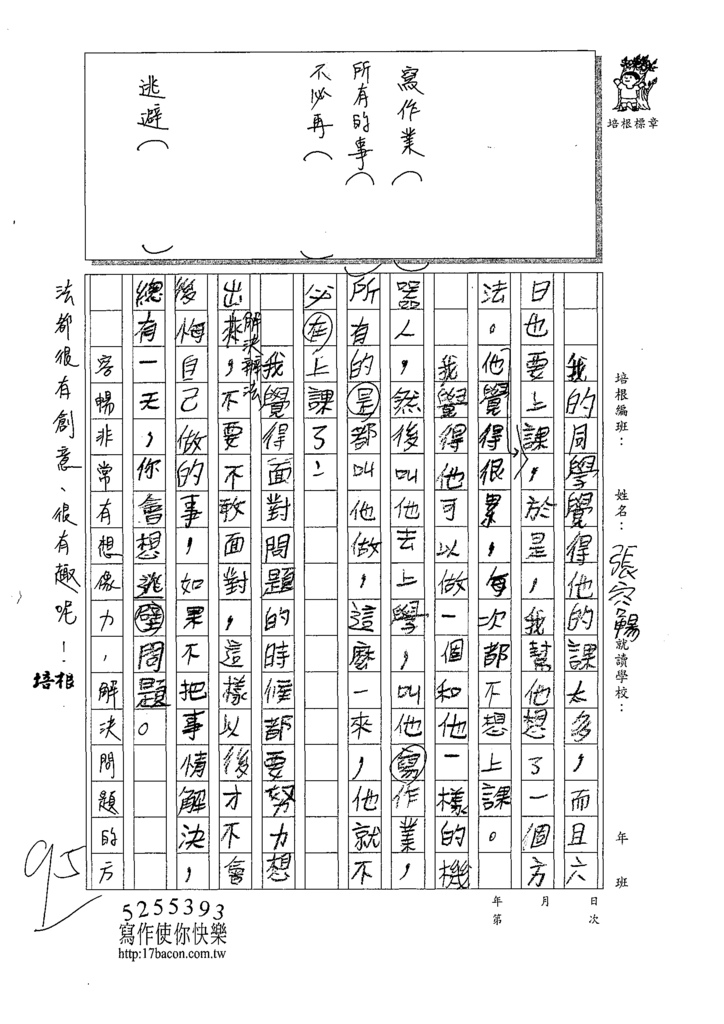 培根標章
寫作業（
所有的事（
不必再（　）
逃避（　）
培根編班：
姓名：張容暢
就讀學校：
年
班
我的同學覺得他的課太多，而且六
日也要上課，於是，我幫他想了一個方
法。他覺得很累，每次都不想上課。
我覺得他可以做一個和他一樣的機
器人，然後叫他去上學，叫他寫作業，
所有的是都叫他做，這麼一來，他就不
必在上課了！
我覺得面對問題的時候都要努力想
出來，不要不敢面對，這樣以後才不會
解決辦法
後悔自己做的事，如果不把事情解決，
總有一天，你會想逃壁問題。
容暢非常有想像力，解決問題的方
法都很有創意、很有趣呢！
培根
95
年　月　日
第　次
5255393
寫作使你快樂
http:17bacon.com.tw